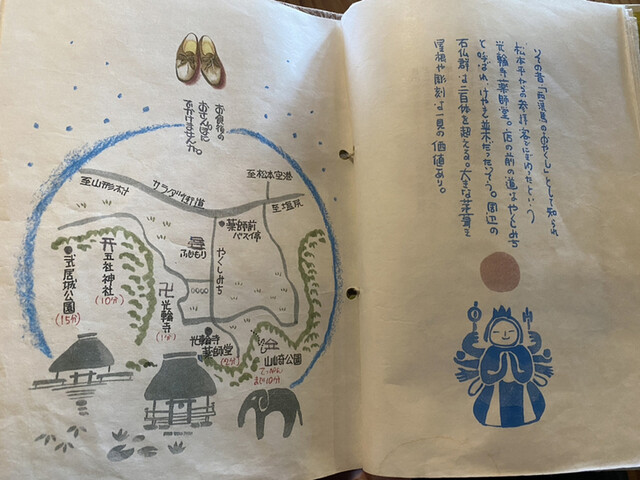 その昔「西洗馬のおやくし」として知られ
松本平からの参拝客でにぎわったという
光輪寺薬師堂。店の前の道はやくしみち
と呼ばれ、けやき並木だったそう。周辺の
石仏群は二百体を超える。大きな茅葺き
屋根や彫刻は一見の価値あり。
お食後の
おさんぽに
でかけませんか。
至松本空港
至山形村
サラダ街道
至塩尻
薬師前
バス停
やくしみち
五社神社
(10分)
武居城公園
(15分)
卍光輪寺
(1分)
光輪寺
薬師堂
(2分)
山崎公園
10分